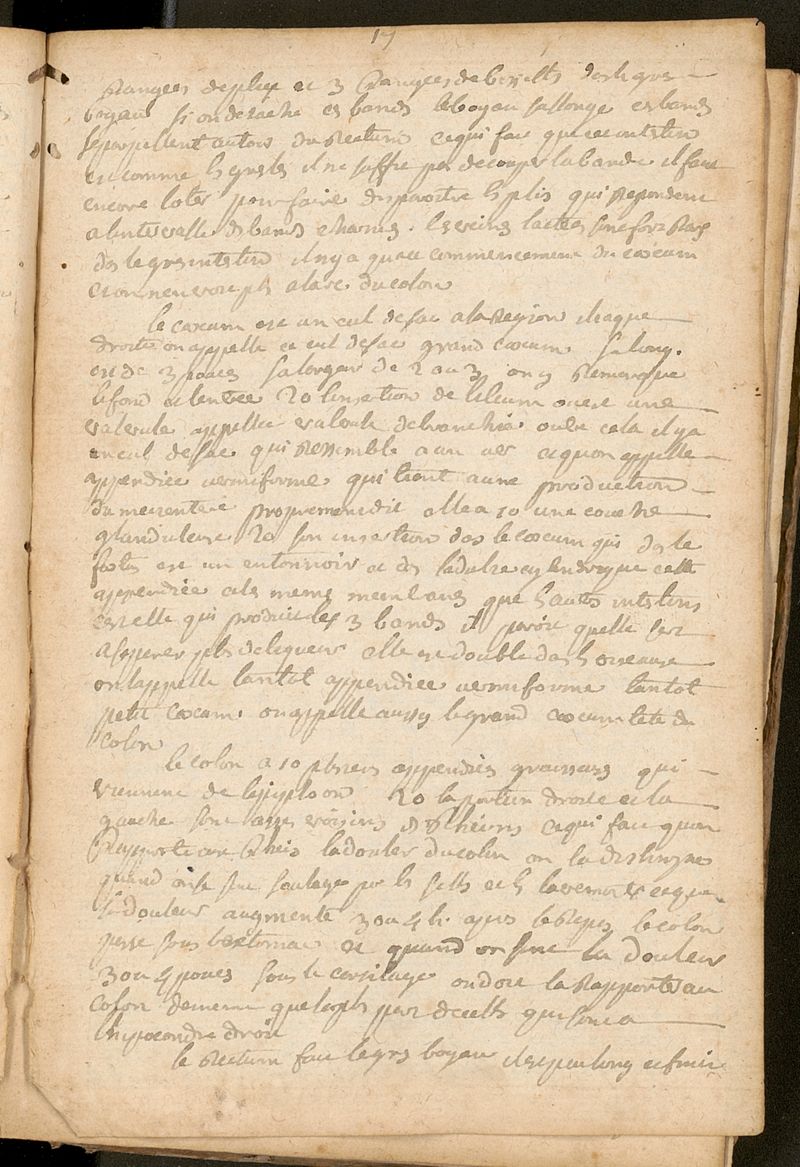 17
Rangees de plis et 3 Rangees de bosselts ds le gros
boyau si on detache ces bands le boyau sallonge ces bands
separpillent autour du Rectum cequi fait que cet intestin
est comme les gresles il ne suffit pas de couper la bande il faut
encore loter pour faire disparoitre les plis qui Repondent
a lintervalle ds bands charnus. les veines lactées sont fort Rares
ds le gros intestin il ny a quau commencement du coecum
et on nen voit pls a larc du colon
le coecum est un cul de sac a la Region iliaque
droite on appelle ce cul de sac grand coecum sa long.
est de 3 pouces sa largeur de 2 ou 3 on y Remarque
le fond et lentrée 2o linsertion de lileum ou est une
valvule appellée valvule de bauhin outre cela il y a
un cul de sac qui Ressemble a un ver cequon appelle
appendice vermiforme qui tient a une production
du mesentere proprement dit elle a 1o une couche
glanduleuse 2o son insertion ds le coecum qui ds le
foetus est un entonnoir et ds ladulte cylindrique cette
appendice a les meme membranes que ls auts intestins
cest elle qui produit les 3 bands il paroit quelle sert
a separer pls de liqueur elle est double ds ls oiseaux
on lappelle tantot appendice vermiforme tantot
petit coecum on appelle aussy le grand coecum tete du
colon
le colon a 1o plsieurs appendices graisseuses qui
viennent de lepiploon 2o la portion droite et la
gauche sont asses voisines ds Reins cequi fait quon
Rapporte aux Reins la douleur du colon on la distingue
quand on se sent soulagé par ls selles et ls lavements et que
la douleur augmente 3 ou 4 h. apres le Repas le colon
passe sous lestomac et quand on sent la douleur
3 ou 4 pouces sous le cartilage on doit la Rapporter au
colon de meme quelques par de celle qui sont a
lhypocondre droit
le Rectum fait le gros boyau il est peu long et finit